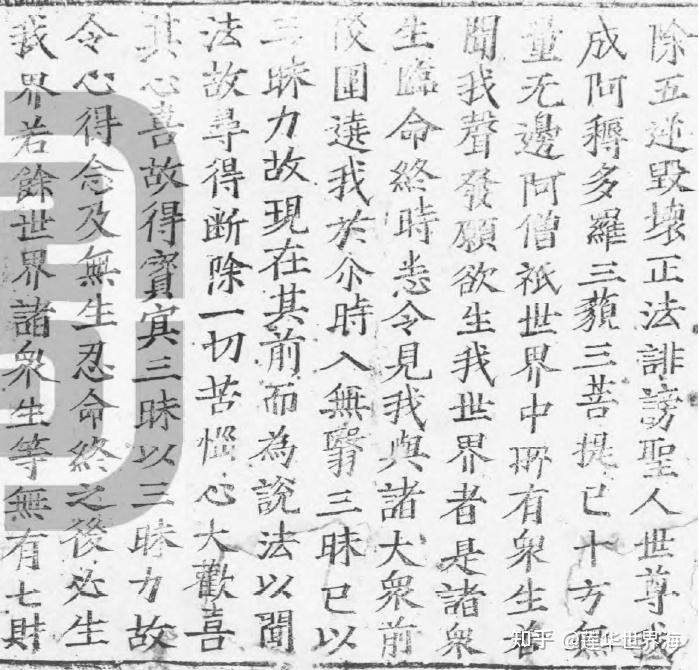 除五逆毀壞正法誹謗聖人世尊我
成阿耨多羅三藐三菩提已十方無
量无邊阿僧祇世界中所有衆生若
聞我聲發願欲生我世界者是諸衆
生臨命終時悉令見我與諸大衆前
後圍遶我於尒時入無翳三昧已以
三昧力故現在其前而為說法以聞
法故尋得断除一切苦惱心大歡喜
其心喜故得寳寘三昧以三昧力故
令心得念及無生忍命終之後必生
我界若餘世界諸衆生等無有七財
知乎 @莲华世界海